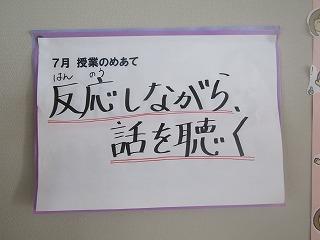 7月 授業のめあて
はん のう
反応しながら、
話を聴く